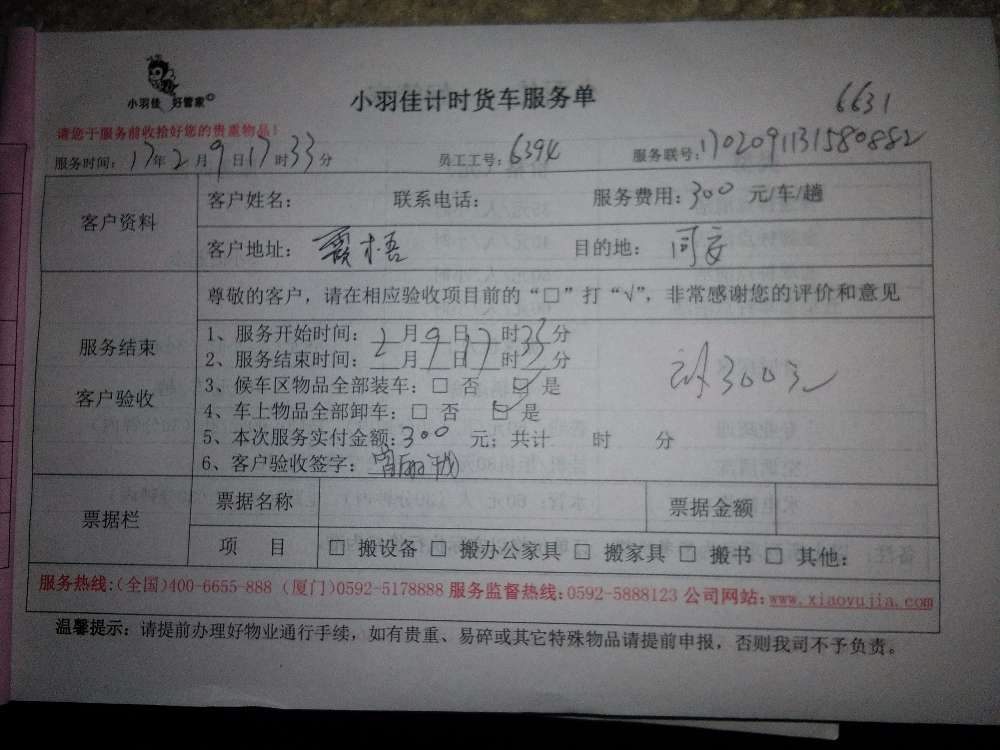 小羽佳 好管家
小羽佳计时货车服务单
6631
请您于服务前收拾好您的贵重物品!
服务时间: 17年2月9日17时33分 员工工号: 6394 服务联号: 1702091131580882
客户资料
客户姓名: 联系电话: 服务费用: 300 元/车/趟
客户地址: 霞梧 目的地: 同安
服务结束
客户验收
尊敬的客户, 请在相应验收项目前的“□”打“√”, 非常感谢您的评价和意见
1、服务开始时间: 2月9日17时33分
2、服务结束时间: 2月9日17时33分
3、候车区物品全部装车: □ 否 ☑ 是
4、车上物品全部卸车: □ 否 ☑ 是
5、本次服务实付金额: 300 元; 共计 时 分
6、客户验收签字:
300元
票据栏
票据名称 票据金额
项 目 □ 搬设备 □ 搬办公家具 □ 搬家具 □ 搬书 □ 其他:
服务热线:(全国)400-6655-888 (厦门)0592-5178888 服务监督热线:0592-5888123 公司网站:www.xiaoyujia.com
温馨提示: 请提前办理好物业通行手续, 如有贵重、易碎或其它特殊物品请提前申报, 否则我司不予负责。